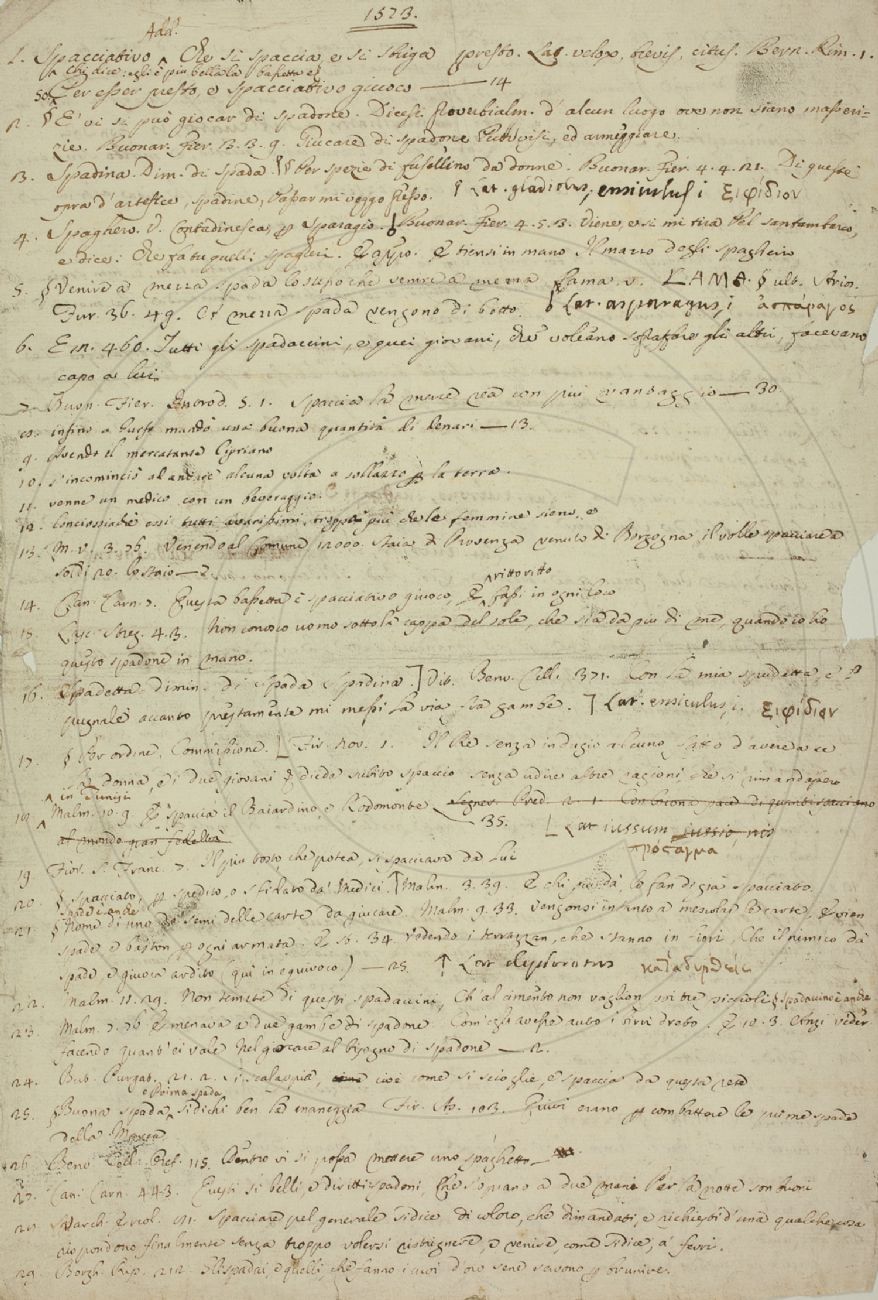 1523.
Add.
1. Spacciativo, Che si spaccia, e si sbriga presto. Lat. velox, brevis, citus. Bern. Rim. 1.
Chi dice: egli è più bella la bassetta
50. Per esser presto, e spacciativo giuoco — 14
2. § E' vi si può giocar di spadone. Dicesi proverbialm. d'alcun luogo ove non siano masseri-
zie. Buonar. Fier. 3. 3. 9. Giucare di spadone ed armeggiare.
3. Spadina. Dim. di spada § Per spezie di fusellino da donne. Buonar. Fier. 4. 4. 21. Di queste
opra d'artefice, spadine, passar mi veggo spesso. Lat. gladiolus, ensiculus i ξιφίδιον
4. Spaghero. V. Contadinesca, p Sparagio. Buonar. Fier. 4. 5. 3. Viene, e si mi tira pel santambarco,
e dice: Che fa tu quelli spagheri. E appo. E tiensi in mano Il mazzo degli spagheri
5. § Venire a mezza spada lo stesso, che venire a mezza lama. v. LAMA. § ult. Arios.
Fur. 36. 49. Et mezza spada vengono di botto. Lat. asparagus, i ἀσπάραγος
6. E n. 460. Tutti gli spadaccini, e quei giovani, che voleano sopraffare gli altri, facevano
capo a lui.
7. Buon. Fier. Introd. 5. 1. Spaccia la merce rea con più vantaggio — 30.
co. infino a Tunisi mandò una buona quantità di denari — 13.
9. Avendo il mercatante Cipriano
10. s'incominciò ad andare alcuna volta a sollazzo p la terra.
11. venne un medico con un beveraggio.
12. Conciossiachè essi tutti avarissimi, troppo più che le femmine sieno, e
13. M. V. 3. 76. Venendo al Comune 12000. staia di Provenza venuto di Borgogna il volle spacciare a
soldi 20. lo staio — 2.
14. Can. Carn. 7. Questa bassetta è spacciativo giuoco, E ritto ritto fassi in ogni loco
15. Lasc. Streg. 4. 3. Non conosco uomo sotto la cappa del sole, che sia da più di me, quando io ho
questo spadone in mano.
16. Spadetta dimin. di Spada Spadina. Vit. Benv. Cell. 371. Con la mia spadetta, e p
pugnale accanto prestamente mi messi la via tra gambe. Lat. ensiculus, i. ξιφίδιον
17. § Per ordine, Commissione. Fir. Nov. 1. Il Re senza indugio alcuno, fatto d'avere a se
la donna, e i due giovani diede subito spaccio senza udire altre ragioni, che si rimandassero
in Tunisi
18. Malm. 10. 9. E spaccia il Baiardino, e Rodomonte Segner. Pred. 2. 1. Con buona pace di quanti sacciano
al mondo gran fedeltà — 35. Lat iussum
πρόσταγμα
19. Fior. S. Franc. 7. Il più tosto, che potea, si spacciava da lui
20. § Spacciato, p spedito, o sfidato da' Medici. Malm. 3. 39. E chi può dà, lo fan di già spacciato
Spade è anche
21. § Nome di uno de' semi delle carte da giucare. Malm. 9. 33. vengonsi intanto a mescolar le carte, E vien
spade, e baston p ogni armata. E st. 34. Vedendo i terrazzan, che stanno in fiori, Che il nimico dà
spade, e giuoca ardito (qui in equivoco) — 25. Lat deploratus
22. Malm. 11. 29. Non temete di questi spadaccini, Ch' al cimento non vaglion poi tre piccioli § spadaccino è anche
23. Malm. 7. 76 E menava a due gambe di spadone Com' egli avesse avuto i birri dreto. E 10. 3. Anzi veder
facendo quant' ei vale Nel giocare al bisogno di spadone — 2.
24. But. Purgat. 21. 2. si scalappia, cioè come si scioglie, e spaccia da questa rete
e Prima spada
25. § Buona spada, si dichi ben la maneggia Fir. As. 103. Quivi erano p combattere le prime spade
della Marca.
26. Benv. Cell. Oref. 115. Dentro vi si possa mettere uno spaghetto —
27. Can. Carn. 443. Questi sì belli, e diritti spadoni, Che s'oprano a due mani Per la notte son fuori
28. Varch. Ercol. 91. Spacciare pel generale si dice di coloro, che dimandati, e richiesti d'una qualche cosa
rispondono finalmente senza troppo volersi ristrignere, e venire, come si dice, a' ferri.
29. Borgh. Rip. 212. Gli spadai, e quelli, che fanno i lavori d'oro se ne servono p brunire.